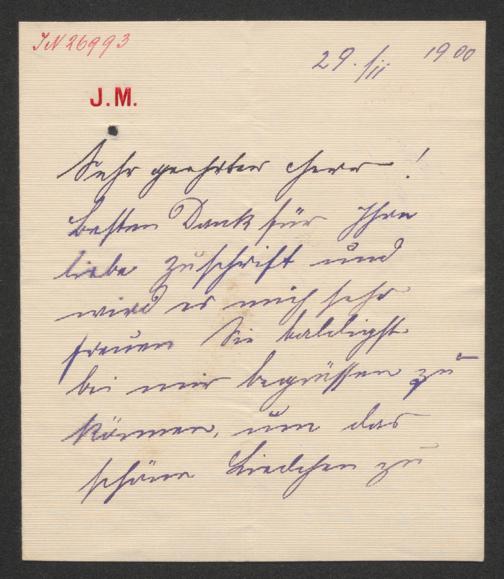 IN 26993
29./II 1900
J.M.
Sehr geehrter Herr!
Besten Dank für Ihre
liebe Zuschrift und
wird es mich sehr
freuen Sie baldigst
bei mir begrüssen zu
können, um das
schöne Liedchen zu